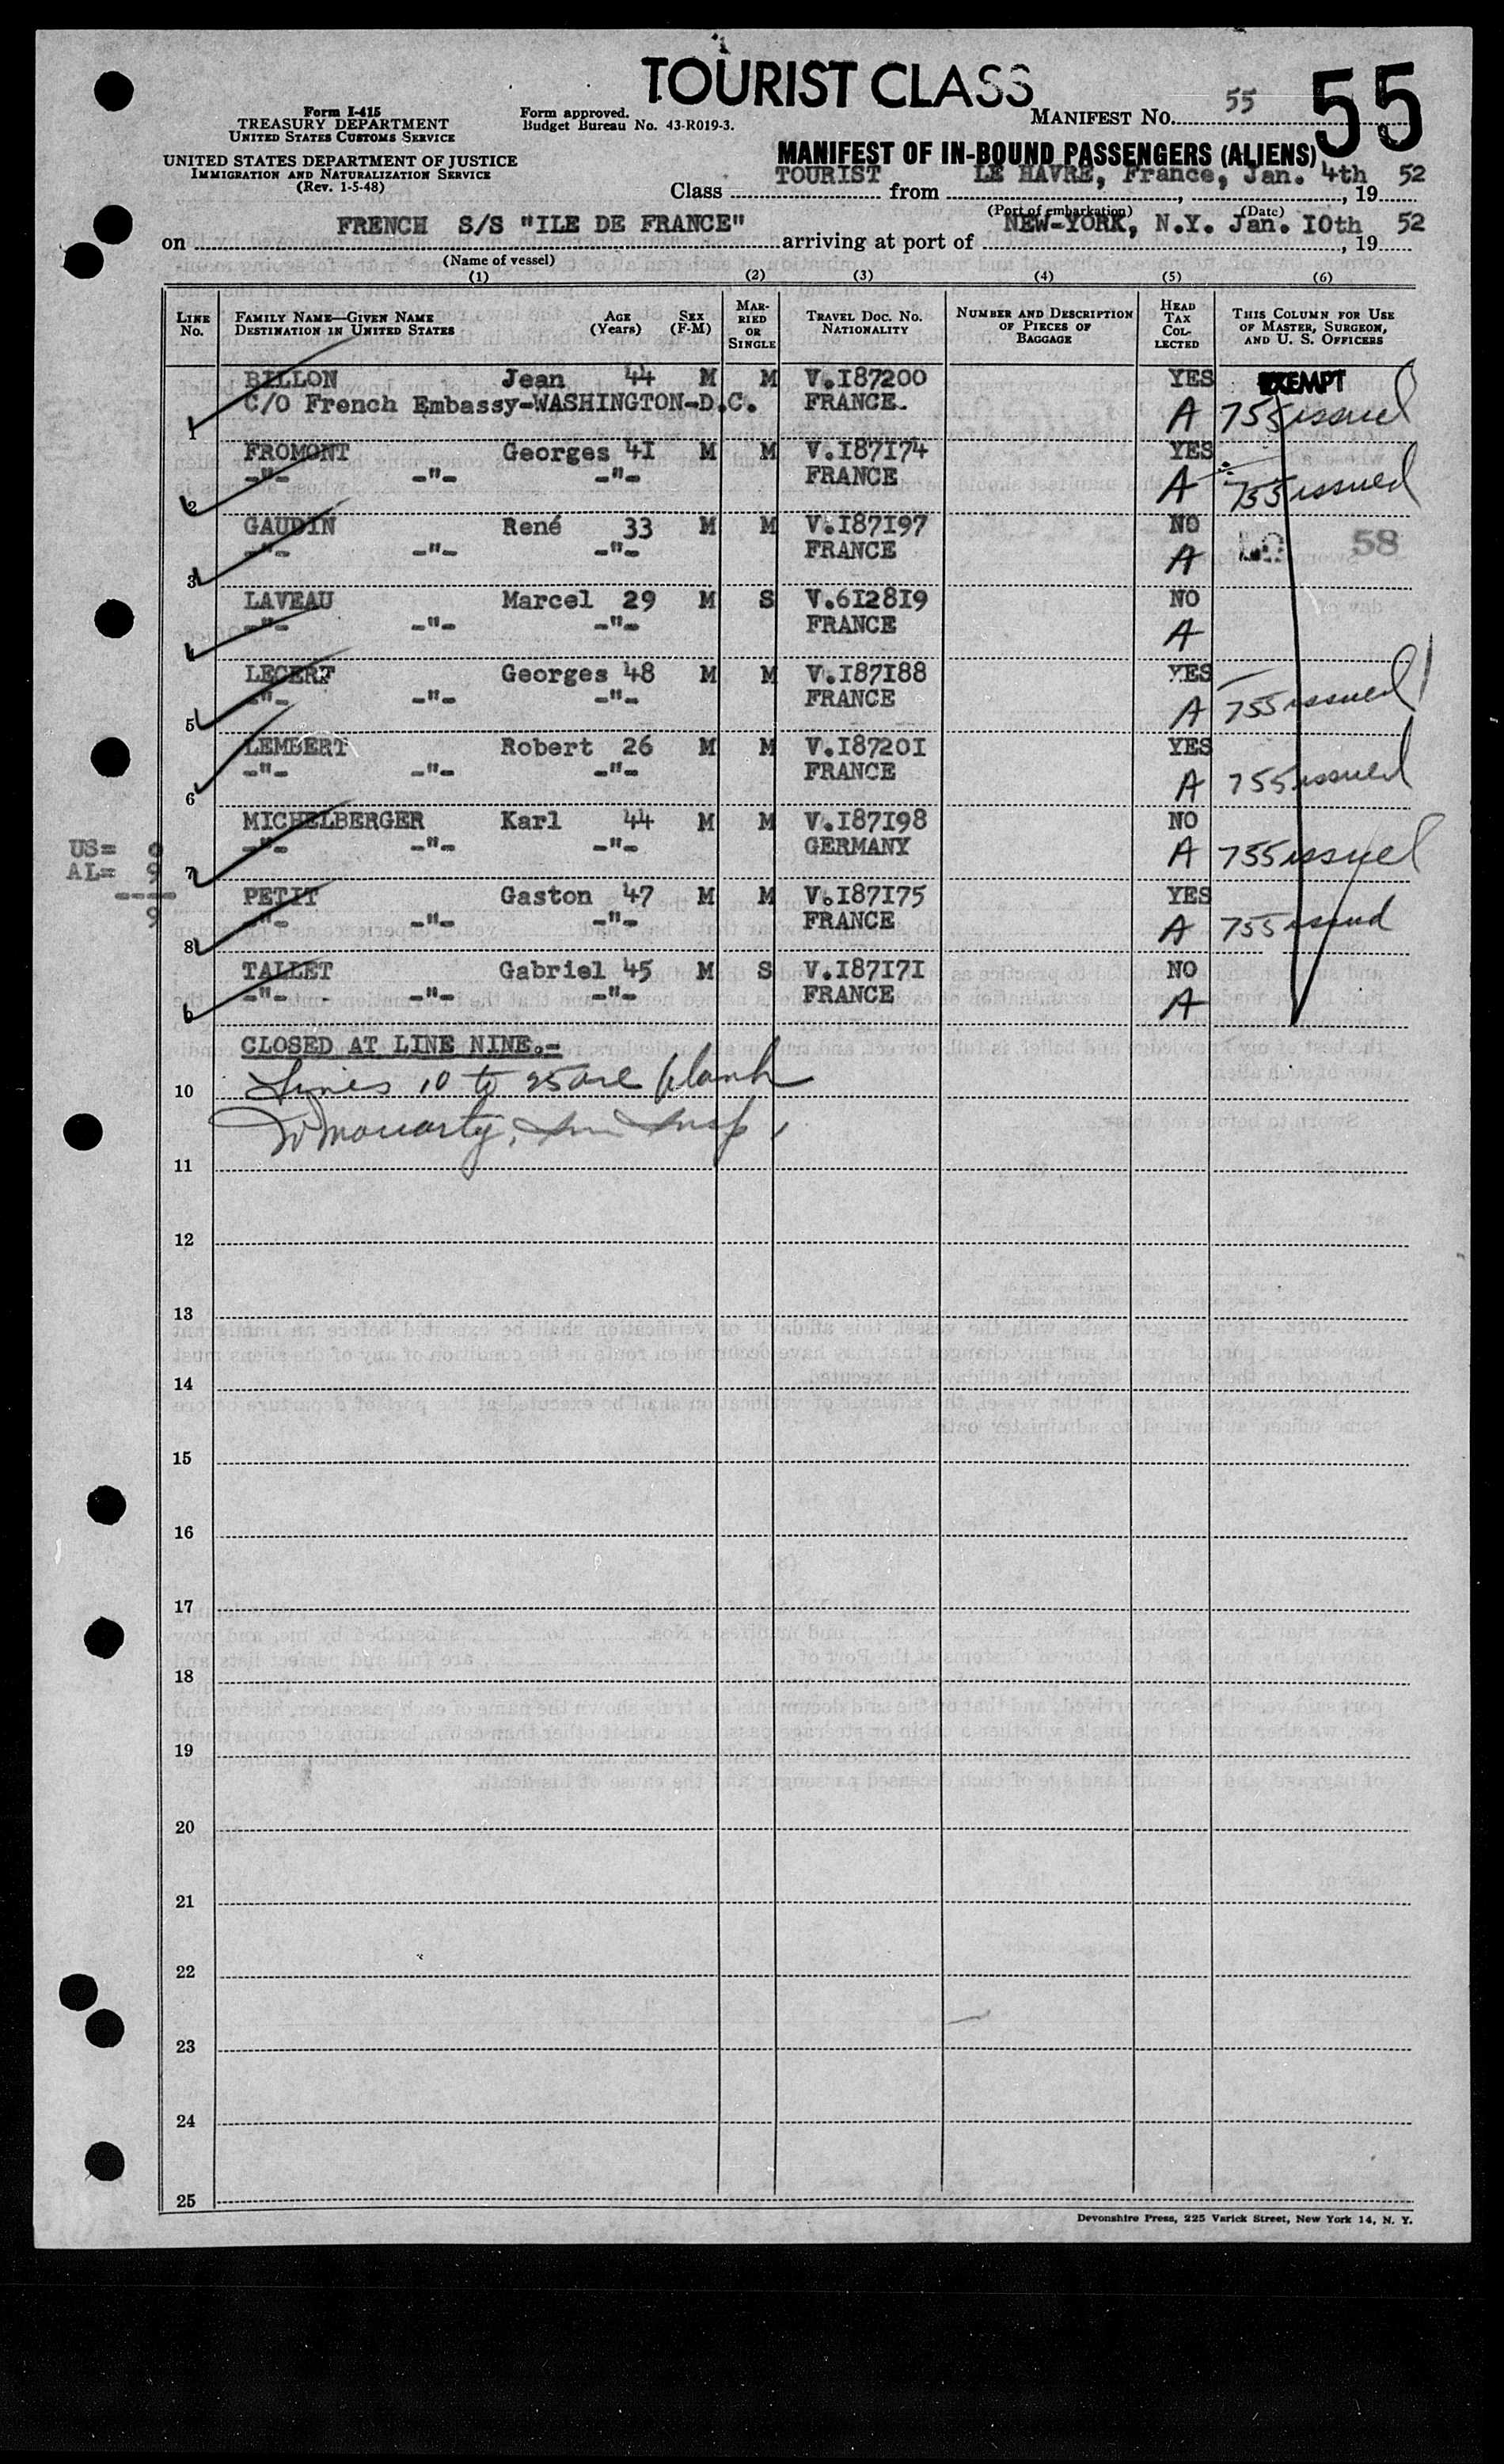 TOURIST CLASS
55
Form I-415
TREASURY DEPARTMENT
UNITED STATES CUSTOMS SERVICE
Form approved.
Budget Bureau No. 43-R019-3.
MANIFEST NO. 55
UNITED STATES DEPARTMENT OF JUSTICE
IMMIGRATION AND NATURALIZATION SERVICE
(Rev. 1-5-48)
MANIFEST OF IN-BOUND PASSENGERS (ALIENS)
Class TOURIST from LE HAVRE, France, Jan. 4th, 19 52
(Port of embarkation) (Date)
on FRENCH S/S "ILE DE FRANCE" arriving at port of NEW-YORK, N.Y. Jan. I0th, 19 52
(Name of vessel)
(1) (2) (3) (4) (5) (6)
LINE NO. FAMILY NAME—GIVEN NAME DESTINATION IN UNITED STATES AGE (Years) SEX (F-M) MARRIED OR SINGLE TRAVEL DOC. NO. NATIONALITY NUMBER AND DESCRIPTION OF PIECES OF BAGGAGE HEAD TAX COLLECTED THIS COLUMN FOR USE OF MASTER, SURGEON, AND U. S. OFFICERS
BILLON Jean 44 M M V.I87200 YES EXEMPT
1 C/O French Embassy-WASHINGTON-D.C. FRANCE. A 755 issued
FROMONT Georges 4I M M V.I87I74 YES
2 -"- -"- -"- FRANCE A 755 issued
GAUDIN René 33 M M V.I87I97 NO 58
3 -"- -"- -"- FRANCE A
LAVEAU Marcel 29 M S V.6I28I9 NO
4 -"- -"- -"- FRANCE A
LECERF Georges 48 M M V.I87I88 YES
5 -"- -"- -"- FRANCE A 755 issued
LEMBERT Robert 26 M M V.I8720I YES
6 -"- -"- -"- FRANCE A 755 issued
MICHELBERGER Karl 44 M M V.I87I98 NO
7 -"- -"- -"- GERMANY A 755 issued
US= 0
AL= 9
----
9
PETIT Gaston 47 M M V.I87I75 YES
8 -"- -"- -"- FRANCE A 755 issued
TALLET Gabriel 45 M S V.I87I7I NO
9 -"- -"- -"- FRANCE A
CLOSED AT LINE NINE.-
10 Lines 10 to 25 are blank
W Moriarty, Im Insp.
11
12
13
14
15
16
17
18
19
20
21
22
23
24
25
Devonshire Press, 225 Varick Street, New York 14, N. Y.